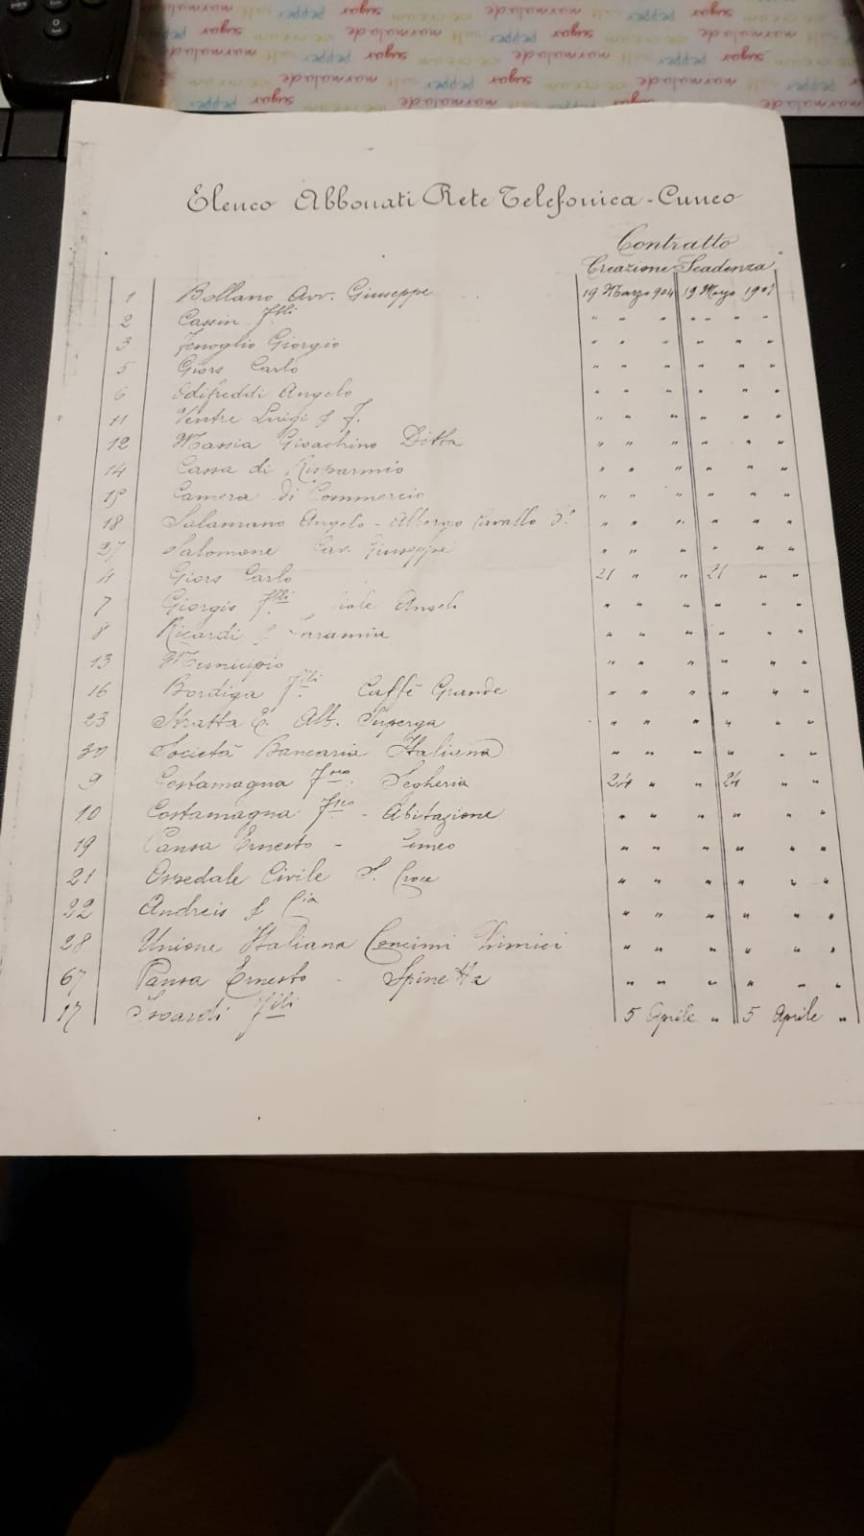 Elenco Abbonati Rete Telefonica - Cuneo
Contratto
Creazione Scadenza
1 Bollano Avv. Giuseppe 19 Marzo 904 19 Marzo 190
2 Cassin Flli " " " " " "
3 Fenoglio Giorgio " " " " " "
5 Giors Carlo " " " " " "
6 Odifreddi Angelo " " " " " "
11 Ventre Luigi & F. " " " " " "
12 Massia Gioachino Ditta " " " " " "
14 Cassa di Risparmio " " " " " "
15 Camera di Commercio " " " " " "
18 Salamano Angelo - Albergo Cavallo " " " " " "
27 Salomone Cav. Giuseppe " " " " " "
4 Giors Carlo 21 " " 21 " "
7 Giorgis Flli " " " " " "
8 Ricardi & " " " " " "
13 Municipio " " " " " "
16 Bordiga Flli Caffè Grande " " " " " "
23 Stratta E. Alb. Superga " " " " " "
30 Società Bancaria Italiana " " " " " "
9 Costamagna Fsco. Segheria 24 " " 24 " "
10 Costamagna Fsco - Abitazione " " " " " "
19 Pansa Ernesto - Cuneo " " " " " "
21 Ospedale Civile S. Croce " " " " " "
22 Andreis & Cia " " " " " "
28 Unione Italiana Concimi Chimici " " " " " "
67 Pansa Ernesto - Spinetta " " " " " "
17 Isoardi Flli 5 Aprile " 5 Aprile "
sugar pepper salt marmalade
marmalade sugar pepper